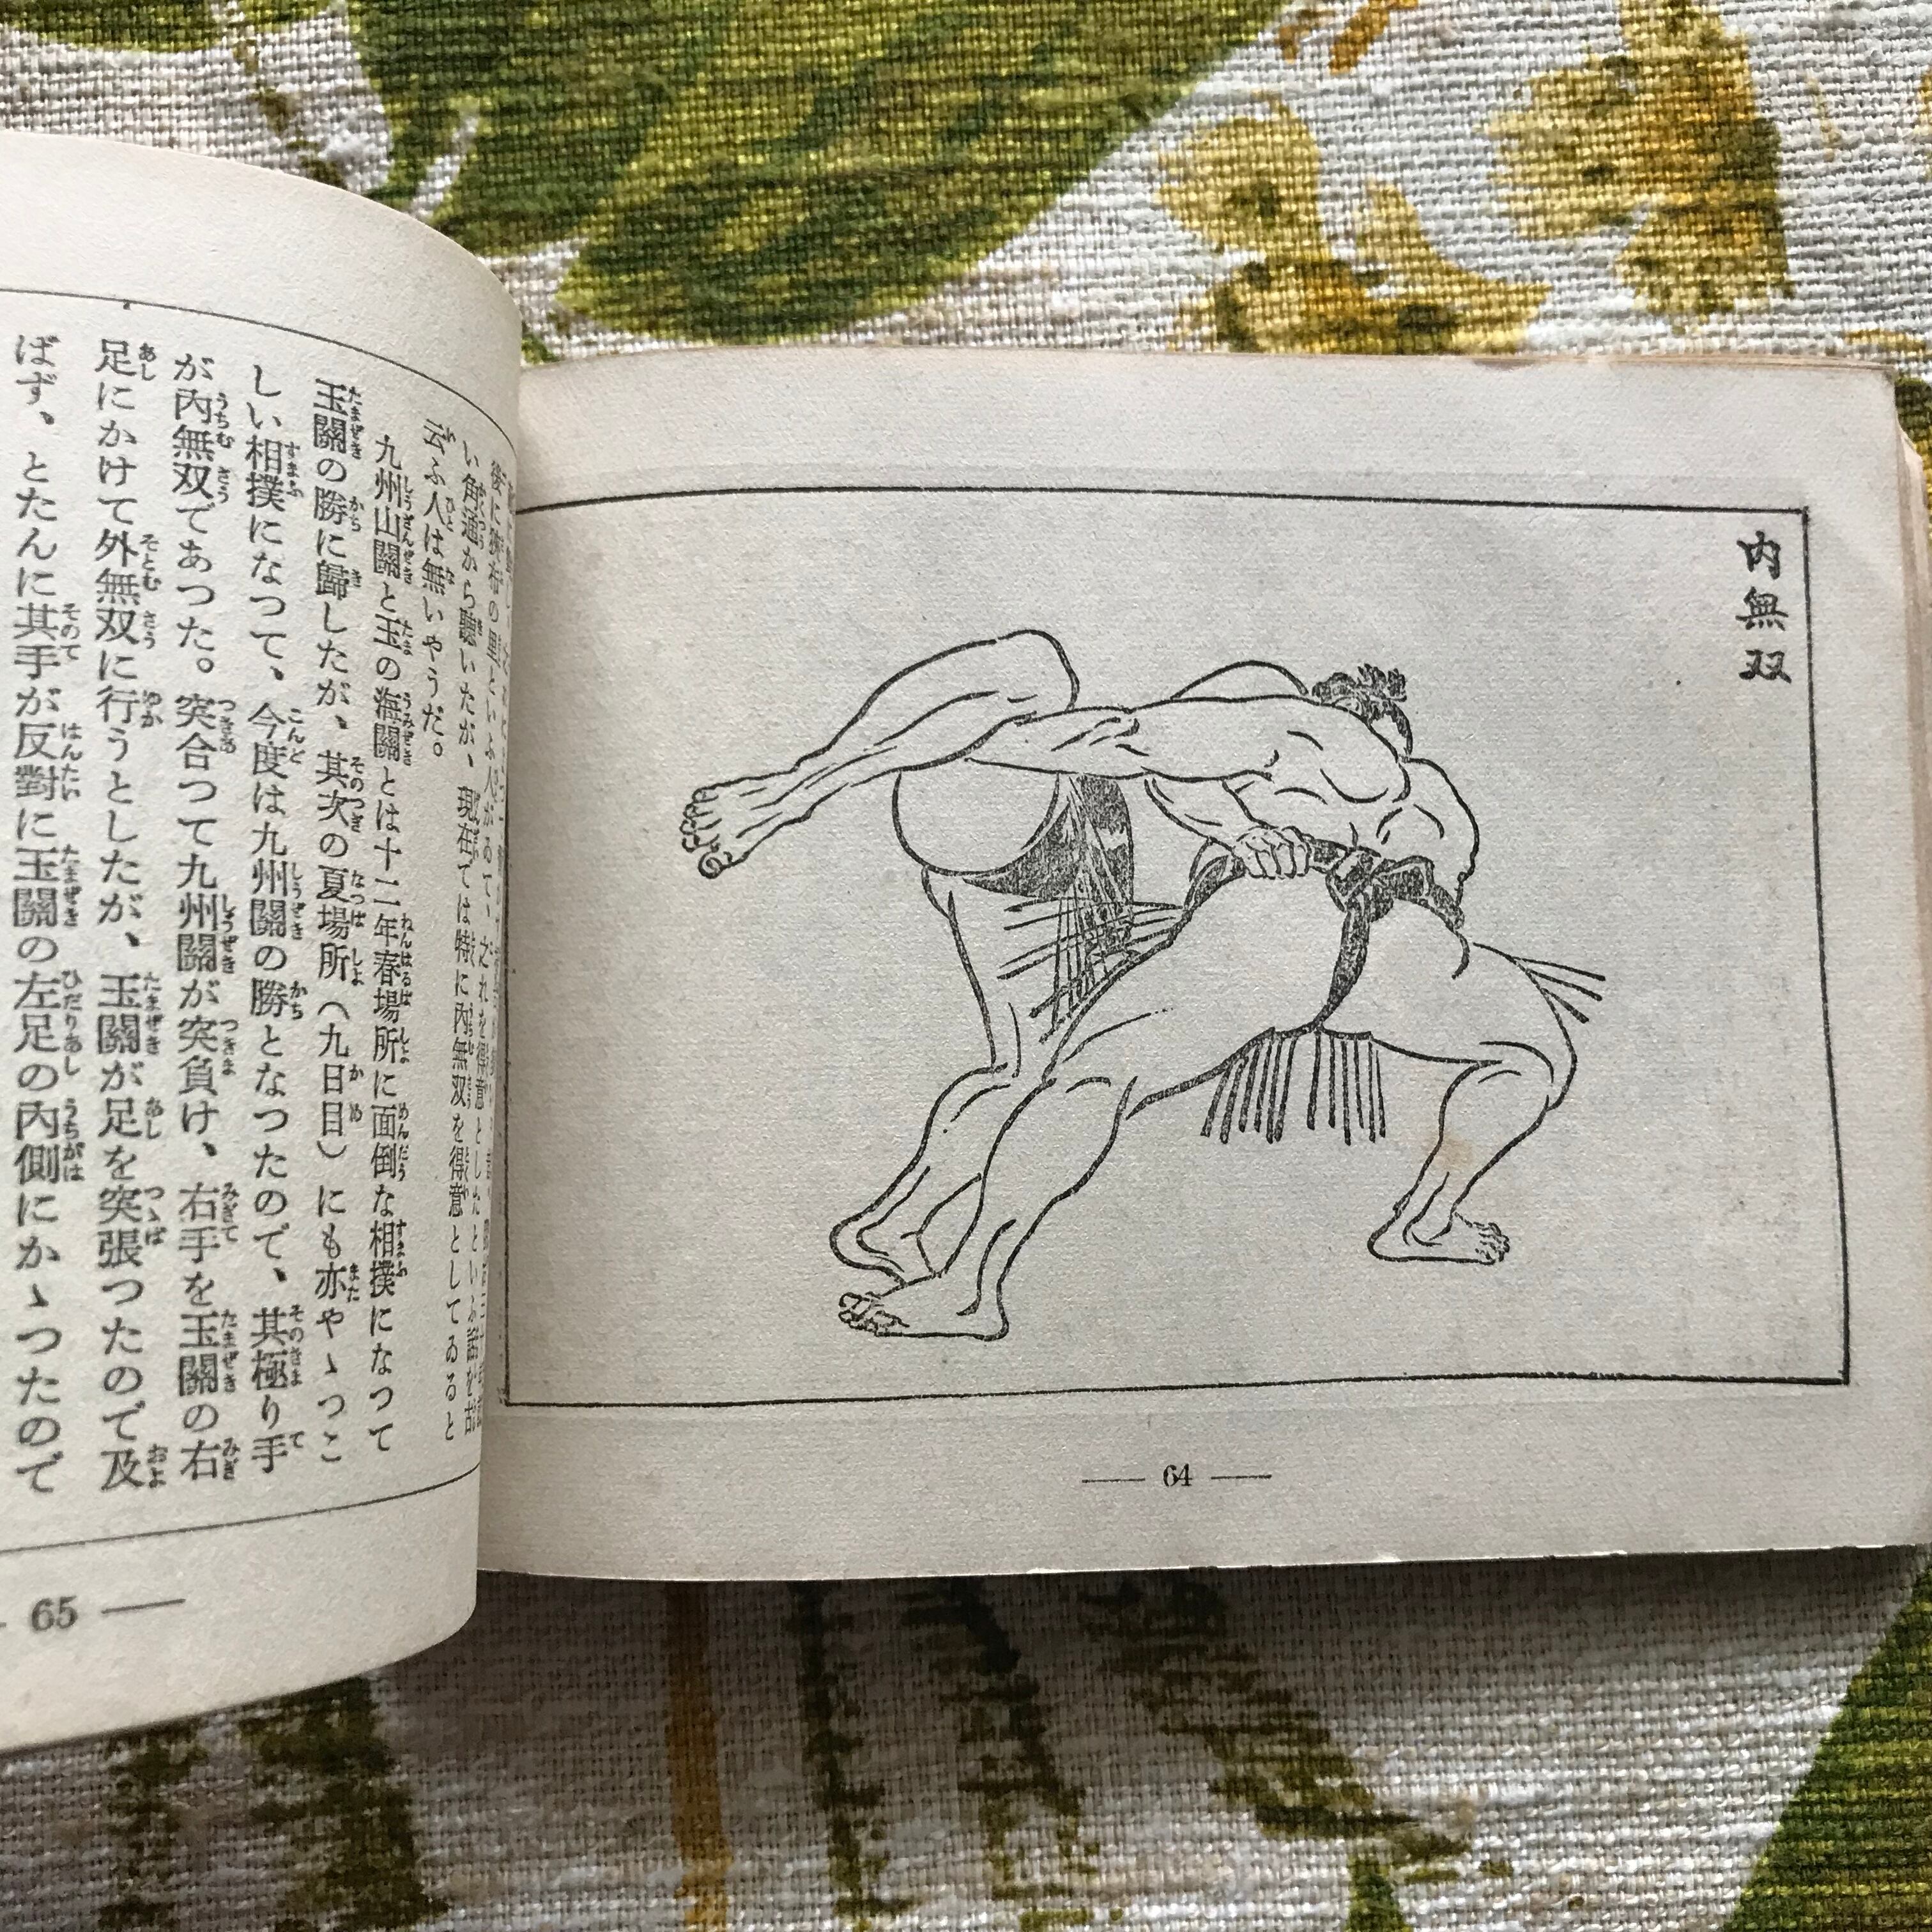 内無双
64
後に狹布の里といふ人があて、之れを得意としたといふ話を古
い角通から聽いたが、現在では特に内無双を得意としてゐると
云ふ人は無いやうだ。
九州山關と玉の海關とは十二年春場所に面倒な相撲になつて
玉關の勝に歸したが、其次の夏場所（九日目）にも亦やゝつこ
しい相撲になつて、今度は九州關の勝となつたので、其極り手
が内無双であつた。突合つて九州關が突負け、右手を玉關の右
足にかけて外無双に行うとしたが、玉關が足を突張つたので及
ばず、とたんに其手が反對に玉關の左足の内側にかゝつたので
65